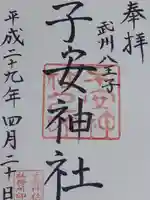 奉拝
武州八王子
子安神社
平成二十九年四月二十日